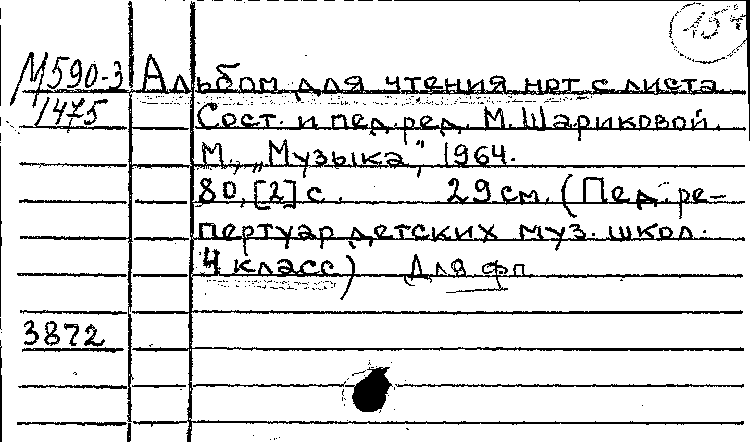 М590-3 Альбом для чтения нот с листа
1475 Сост. и пед. ред. М. Шариковой.
М., „Музыка", 1964.
80, [2] с. 29 см. (Пед. ре-
пертуар детских муз. школ.
4 класс) Для фп.
3872